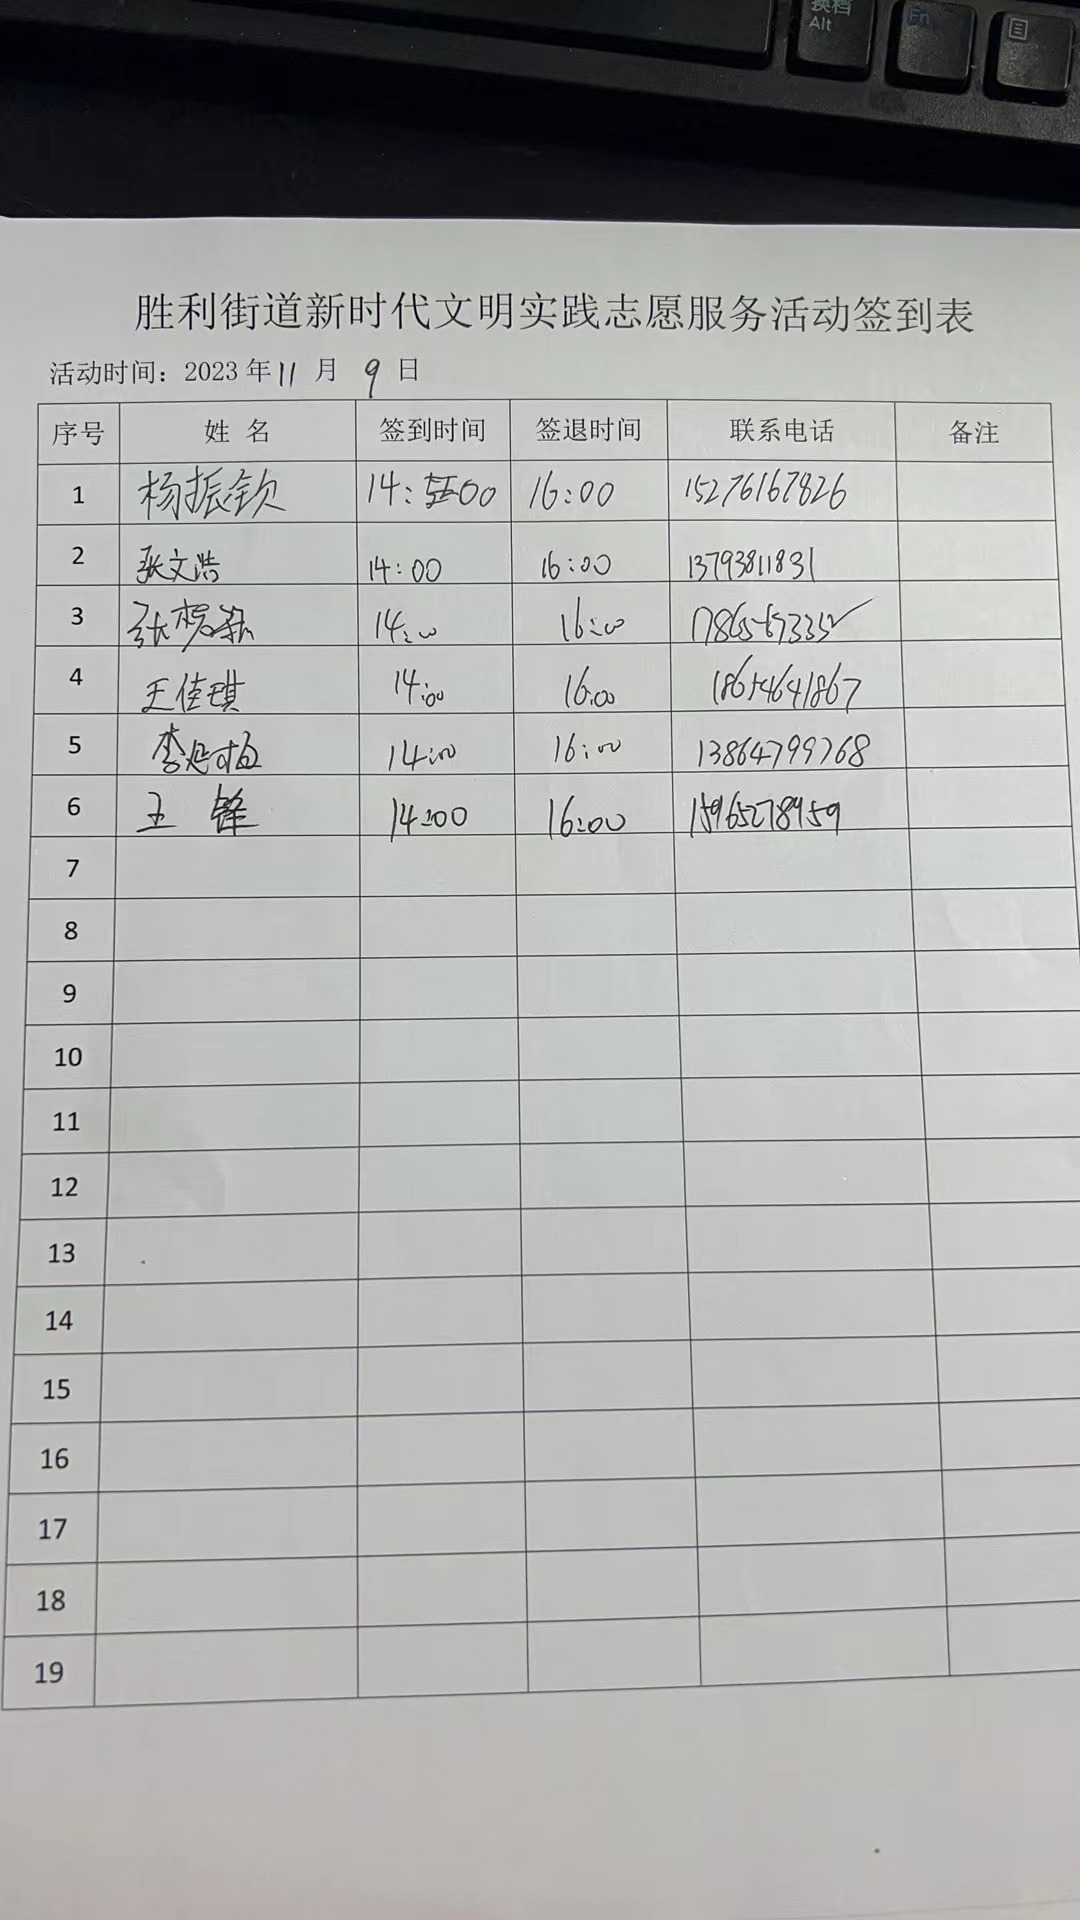 换档
Alt
Fn
胜利街道新时代文明实践志愿服务活动签到表
活动时间：2023年11月9日
序号 姓名 签到时间 签退时间 联系电话 备注
1 杨振钦 14:00 16:00 15276167826
2 张文浩 14:00 16:00 13793811831
3 14:00 16:00
4 王佳琪 14:00 16:00 18654641867
5 14:00 16:00 13864799768
6 王锋 14:00 16:00 15965278959
7
8
9
10
11
12
13
14
15
16
17
18
19